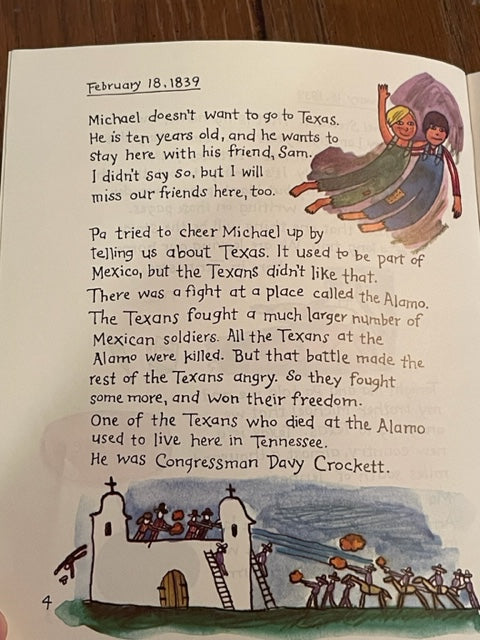 February 18, 1839
Michael doesn't want to go to Texas.
He is ten years old, and he wants to
stay here with his friend, Sam.
I didn't say so, but I will
miss our friends here, too.
Pa tried to cheer Michael up by
telling us about Texas. It used to be part of
Mexico, but the Texans didn't like that.
There was a fight at a place called the Alamo.
The Texans fought a much larger number of
Mexican soldiers. All the Texans at the
Alamo were killed. But that battle made the
rest of the Texans angry. So they fought
some more, and won their freedom.
One of the Texans who died at the Alamo
used to live here in Tennessee.
He was Congressman Davy Crockett.
4